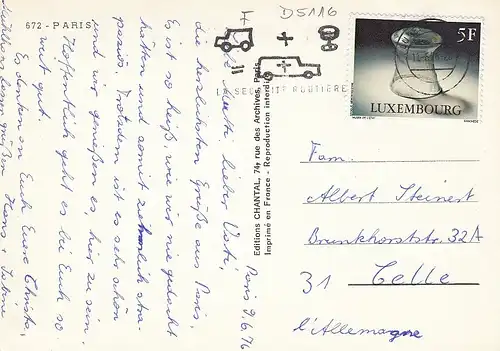 672 - PARIS
F
D5116
LA SECURITE ROUTIERE
5F
LUXEMBOURG
Editions CHANTAL, 74, rue des Archives, Paris
Imprimé en France - Reproduction interdite
Paris 9.6.76
Liebe Mutti, lieber Vati,
die herzlichsten Grüße aus Paris.
Es ist so heiß, wie wir nie gedacht
hätten und somit ziemlich stra-
paziös. Trotzdem ist es sehr schön
und wir genießen es hier zu sein.
Hoffentlich geht es bei Euch so-
weit gut.
Es denken an Euch Eure Christa,
lassen grüßen Hans +
Fam.
Albert Steinert
Brunkhorststr. 32A
31 Celle
l'Allemagne